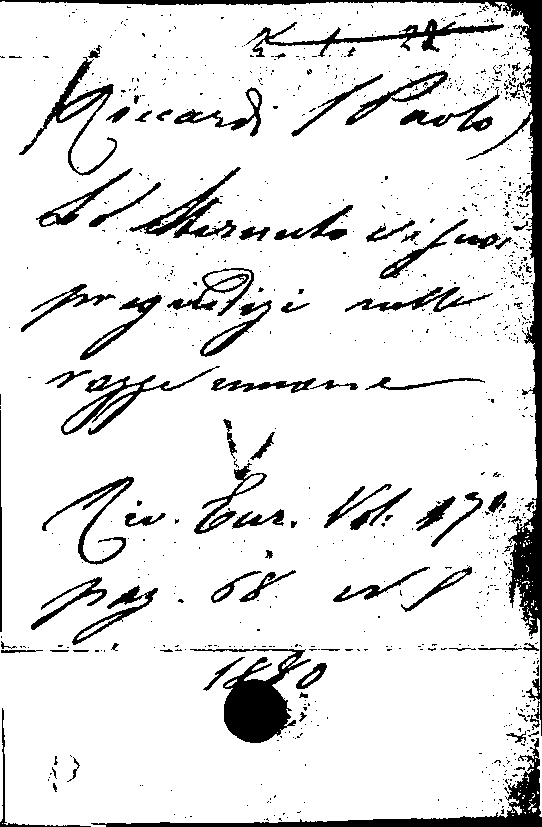 2. 1. 22
Riccardi (Paolo)
Lo Sternuto e i suoi
pregiudizi nelle
razze umane
V
Riv. Eur. Vol. 17°
pag. 68
1880